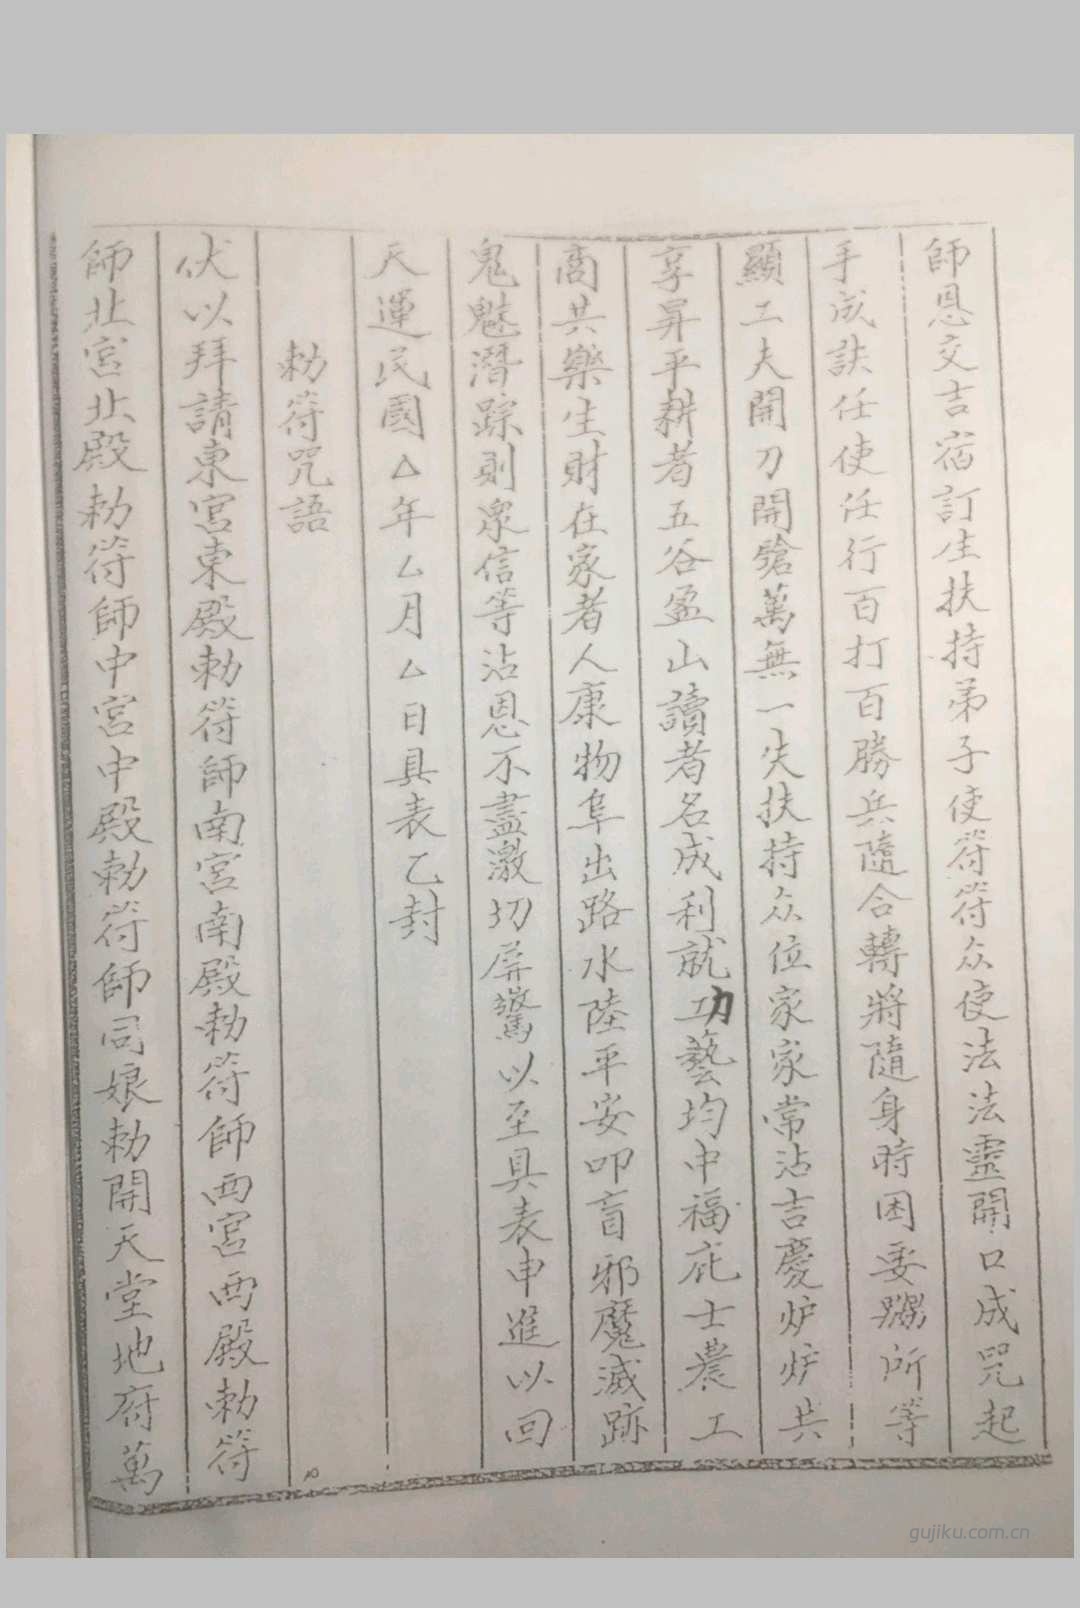 師恩交吉宿訂生扶持弟子使符符众使法法靈開口成咒起
手成訣任使任行百打百勝兵隨合轉將隨身時困委躅所等
顯工夫開刀開鎗萬無一失扶持众位家家常沾吉慶炉炉共
享昇平耕者五谷盈山讀者名成利就功藝均中福庇士農工
商共樂生財在家者人康物阜出路水陸平安叩盲邪魔滅跡
鬼魅潛踪則衆信等沾恩不盡激切屏驚以至具表申進以回
天運民國△年△月△日具表乙封
勅符咒語
伏以拜請東宮東殿勅符師南宮南殿勅符師西宮西殿勅符
師北宮北殿勅符師中宮中殿勅符師同娘勅開天堂地府萬
gujiku.com.cn